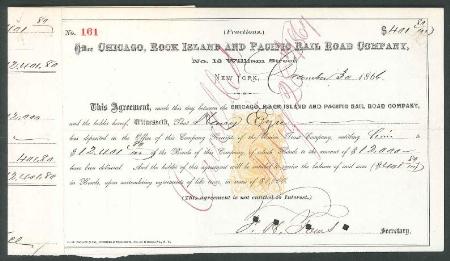 No. 161
(Fractions.)
$401 80/100
Office Chicago, Rock Island and Pacific Rail Road Company,
No. 13 William Street
New York, December 30 1866
This Agreement, made this day between the CHICAGO, ROCK ISLAND AND PACIFIC RAIL ROAD COMPANY,
and the holder hereof, Witnesseth, That Henry
has deposited in the Office of this Company Receipts of the Trust Company, entitling him to
$12,401 80/100 of the Bonds of this Company, of which Bonds to the amount of $12,000
have been delivered. And the holder of this agreement will be entitled to receive the balance of said sum ($401 80/100)
in Bonds, upon surrendering agreements of like tenor, in sums of $1,000.
(This agreement is not entitled to Interest.)
Secretary.
01.80
2,401.80
2,000
401.80
2,401.80